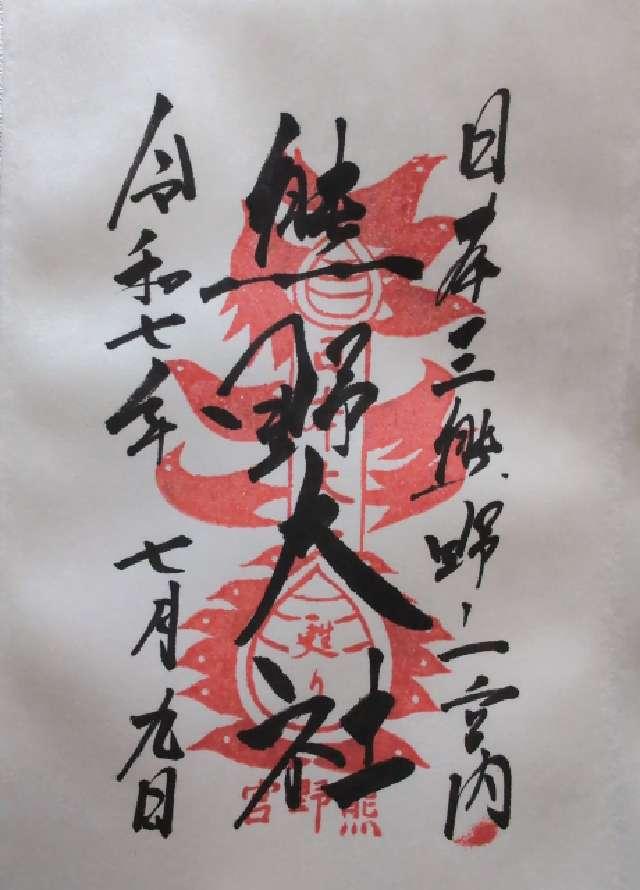 日本三熊野ノ一宮内
熊野大社
令和七年 七月九日
甦り
宮野熊